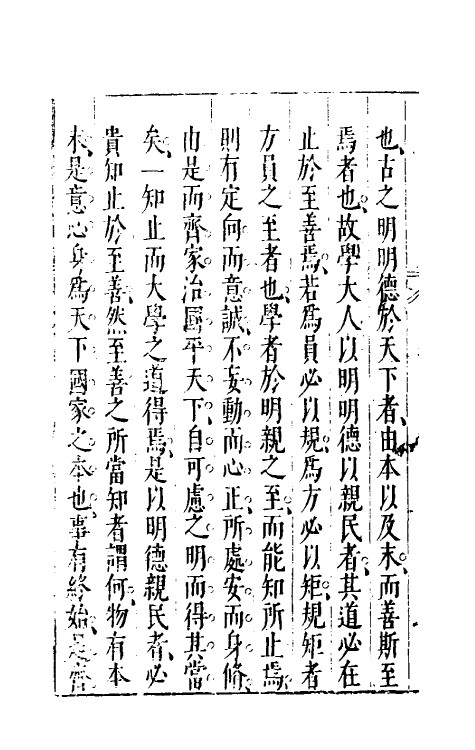 也古之明明德於天下者由本以及末而善斯至
焉者也故學大人以明明德以親民者其道必在
止於至善焉若爲員必以規爲方必以矩規矩者
方員之至者也學者於明親之至而能知所止焉
則有定向而意誠不妄動而心正所處安而身脩
由是而齊家治國平天下自可慮之明而得其當
矣一知止而大學之道得焉是以明德親民者必
貴知止於至善然至善之所當知者謂何物有本
末是意心身爲天下國家之本也事有終始是齊